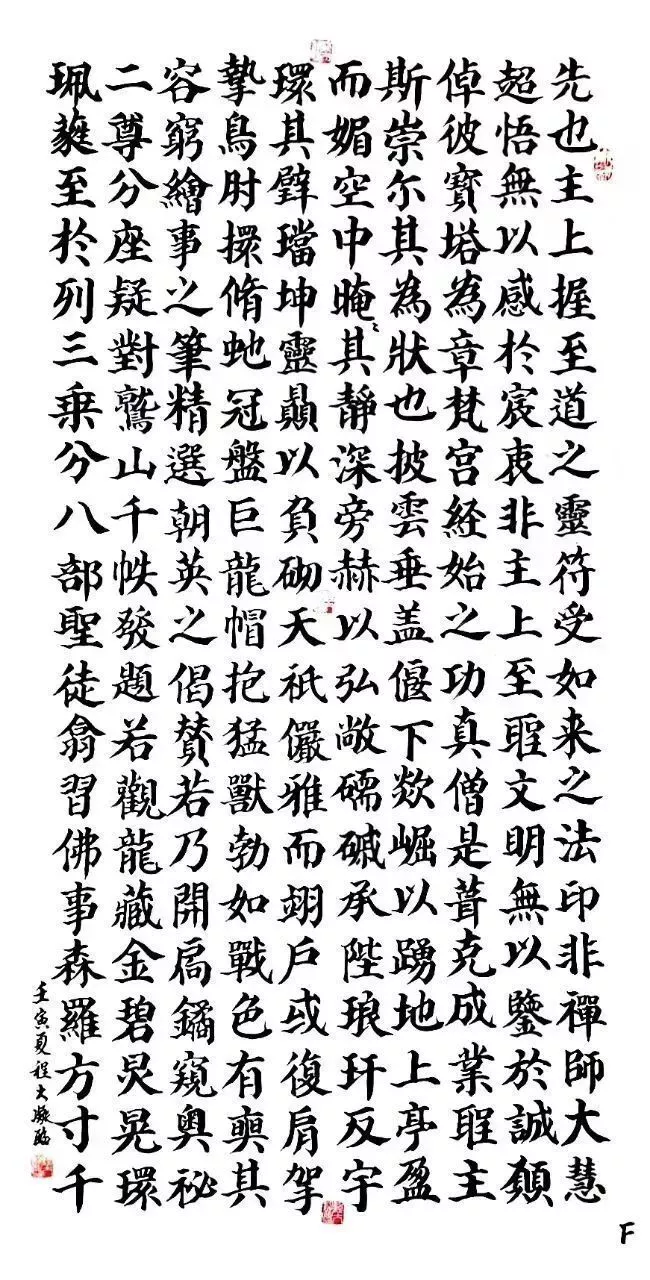 先也主上握至道之靈符受如来之法印非禪師大慧
超悟無以感於宸衷非主上至聖文明無以鑒於誠願
倬彼寶塔為章梵宫経始之功真僧是葺克成業聖主
斯崇尔其為狀也披雲垂盖偃下欻崛以踴地上亭盈
而媚空中晻〻其靜深旁赫以弘敞礝磩承陛琅玕反宇
環其璧璫坤靈贔以負砌天祇儼雅而翊户或復肩挐
摯鳥肘擐脩虵冠盤巨龍帽抱猛獸勃如戰色有奭其
容窮繪事之筆精選朝英之偈贊若乃開扃鐍窺奥祕
二尊分座疑對鷲山千帙發題若觀龍藏金碧炅晃環
珮蕤至於列三乗分八部聖徒翕習佛事森羅方寸千
壬寅夏程大凝臨
F